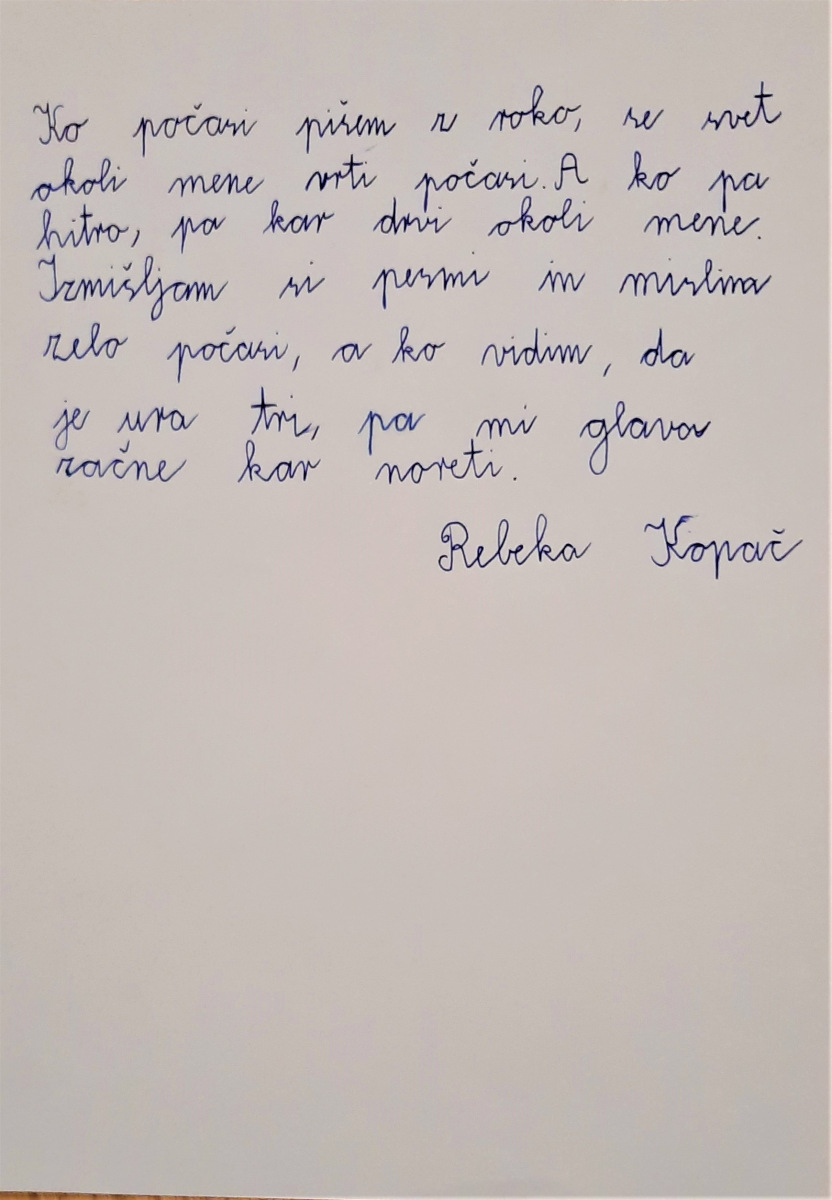 Ko počasi pišem z roko, se svet
okoli mene vrti počasi. A ko pa
hitro, pa kar drvi okoli mene.
Izmišljam si pesmi in mislim
zelo počasi, a ko vidim, da
je ura tri, pa mi glava
začne kar noreti.
Rebeka Kopač